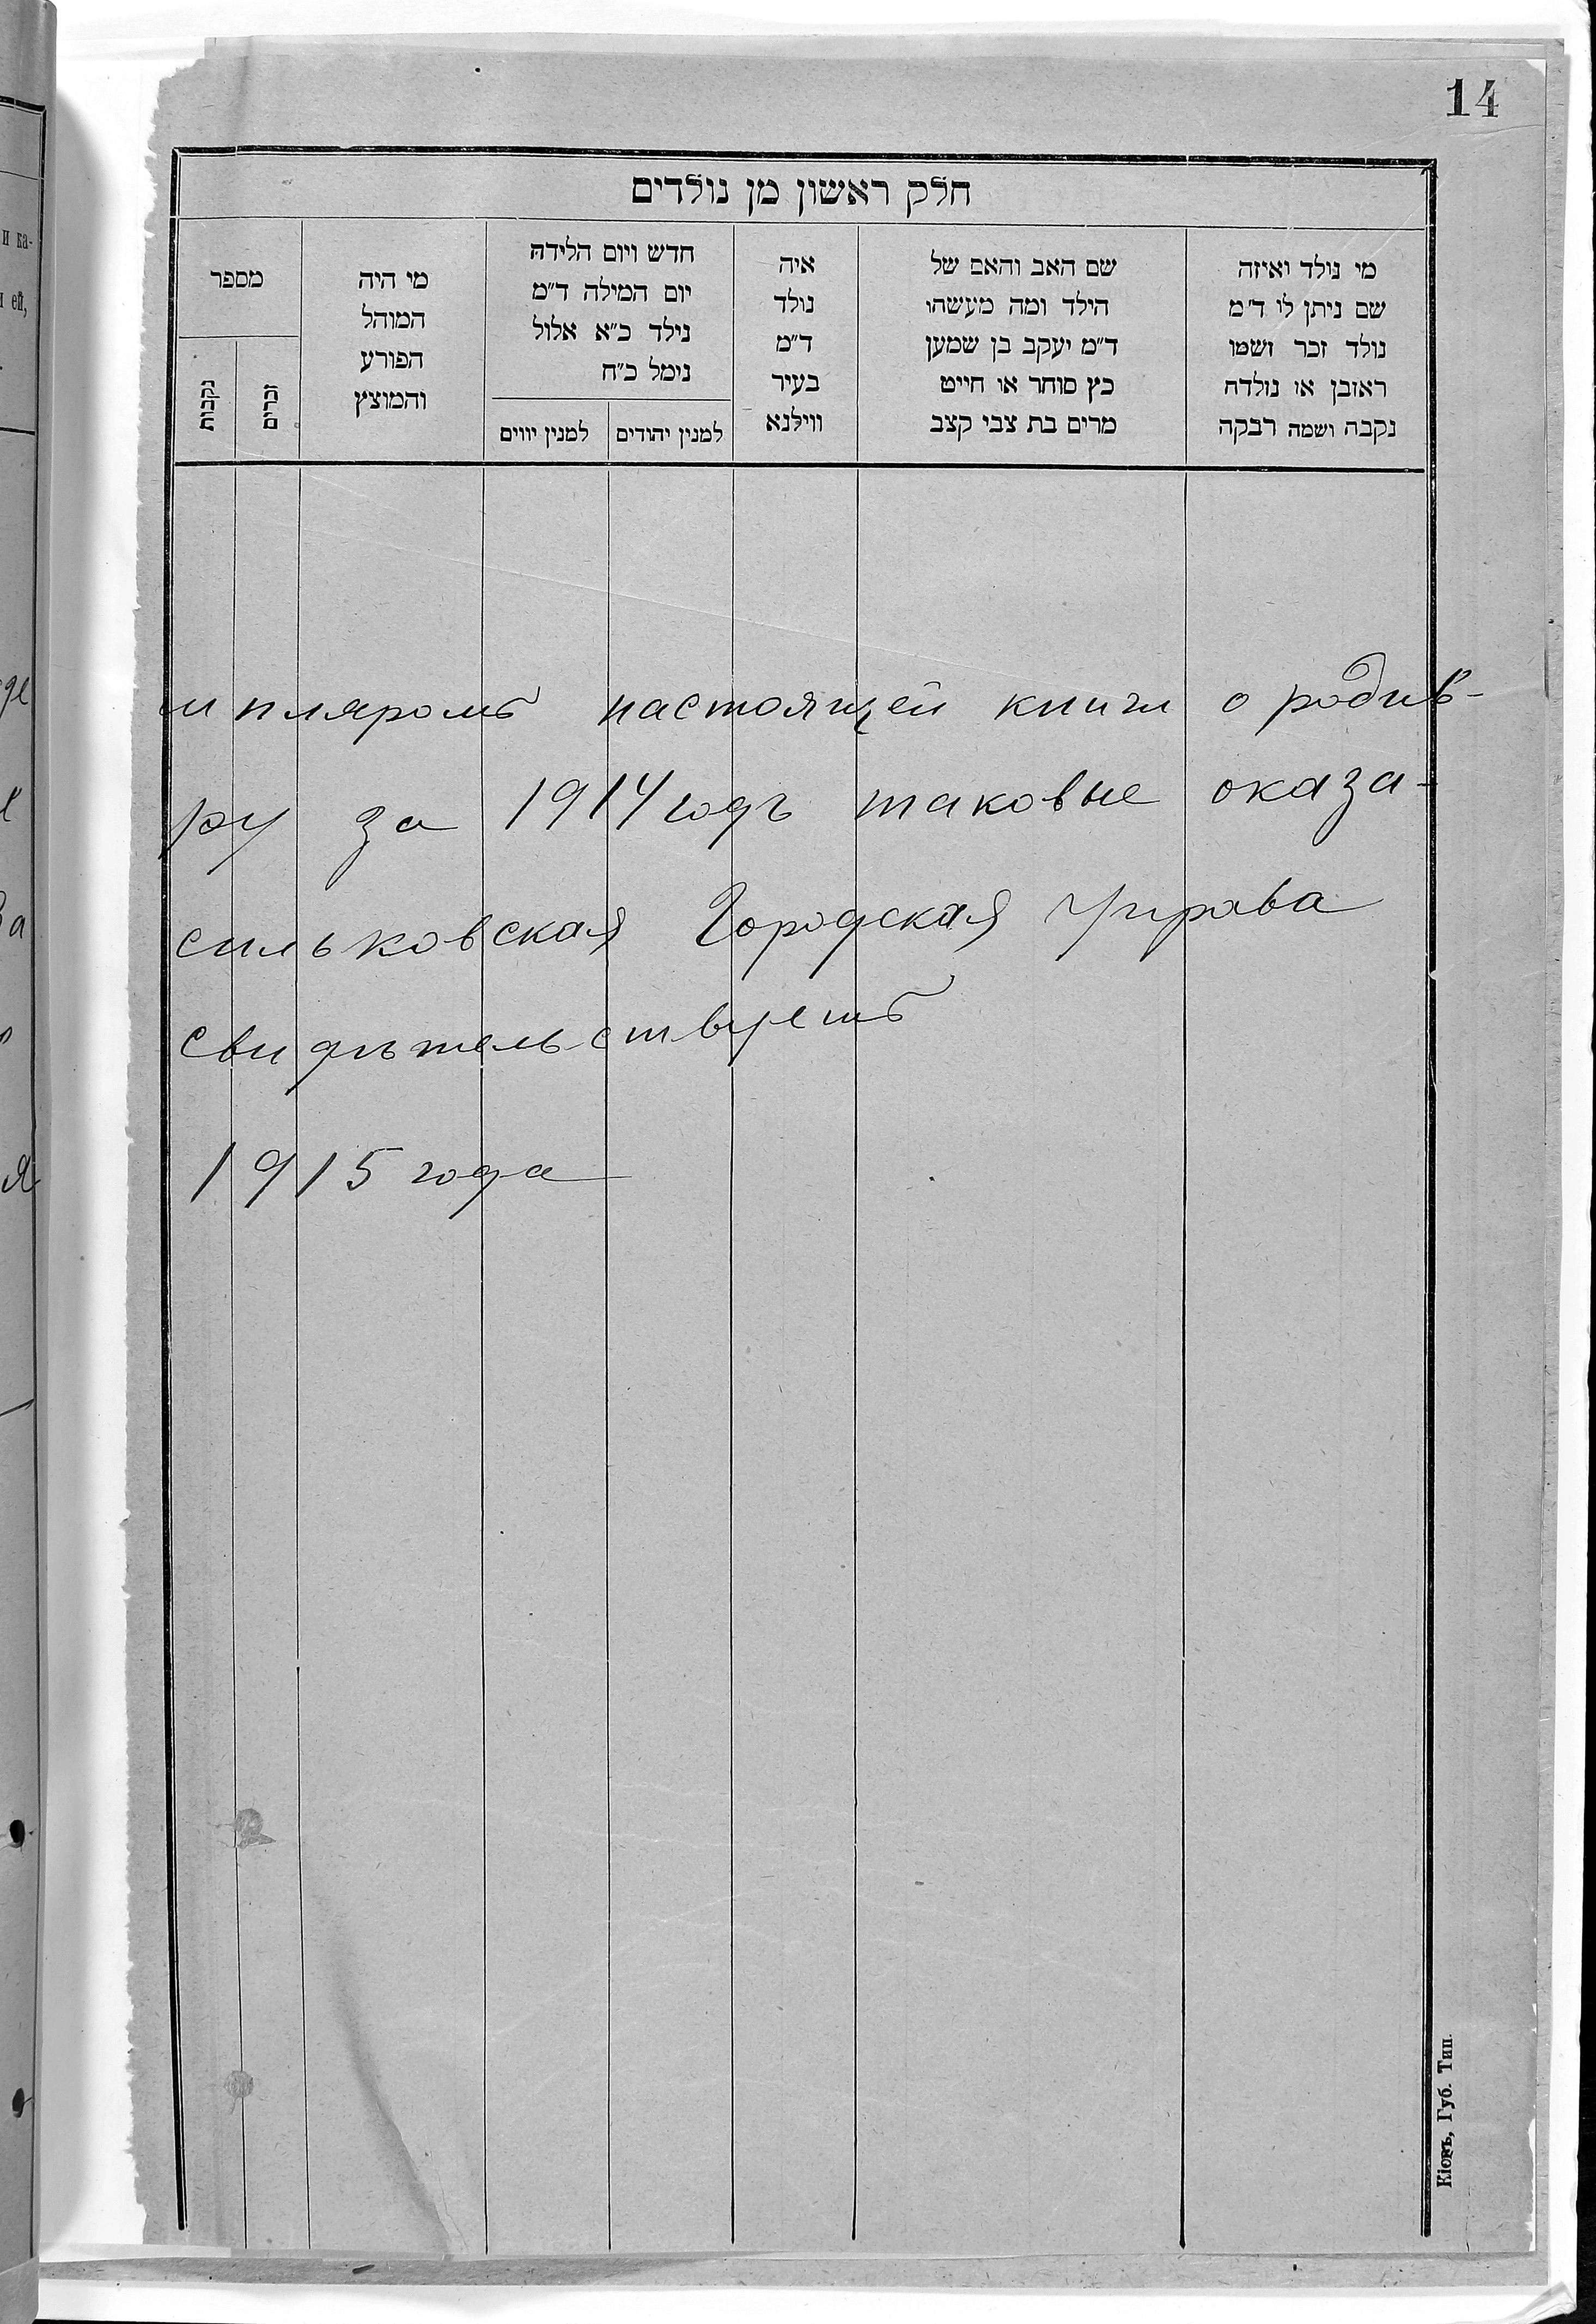 14
חלק ראשון מן נולדים
מי נולד ואיזה
שם ניתן לו ד״מ
נולד זכר ושמו
ראובן או נולדה
נקבה ושמה רבקה
שם האב והאם של
הילד ומה מעשהו
ד״מ יעקב בן שמען
כץ סוחר או חייט
מרים בת צבי קצב
איה
נולד
ד״מ
בעיר
ווילנא
חדש ויום הלידה
יום המילה ד״מ
נילד כ״א אלול
נימל כ״ח
למנין יהודים
למנין יווים
מי היה
המוהל
הפורע
והמוצץ
מספר
זכרים
נקבות
мпляромъ настоящей книги о родив-
ру за 1914 годъ таковые оказа-
сильковская Городская Управа
свидѣтельствуетъ
1915 года
Кіевъ, Губ. Тип.